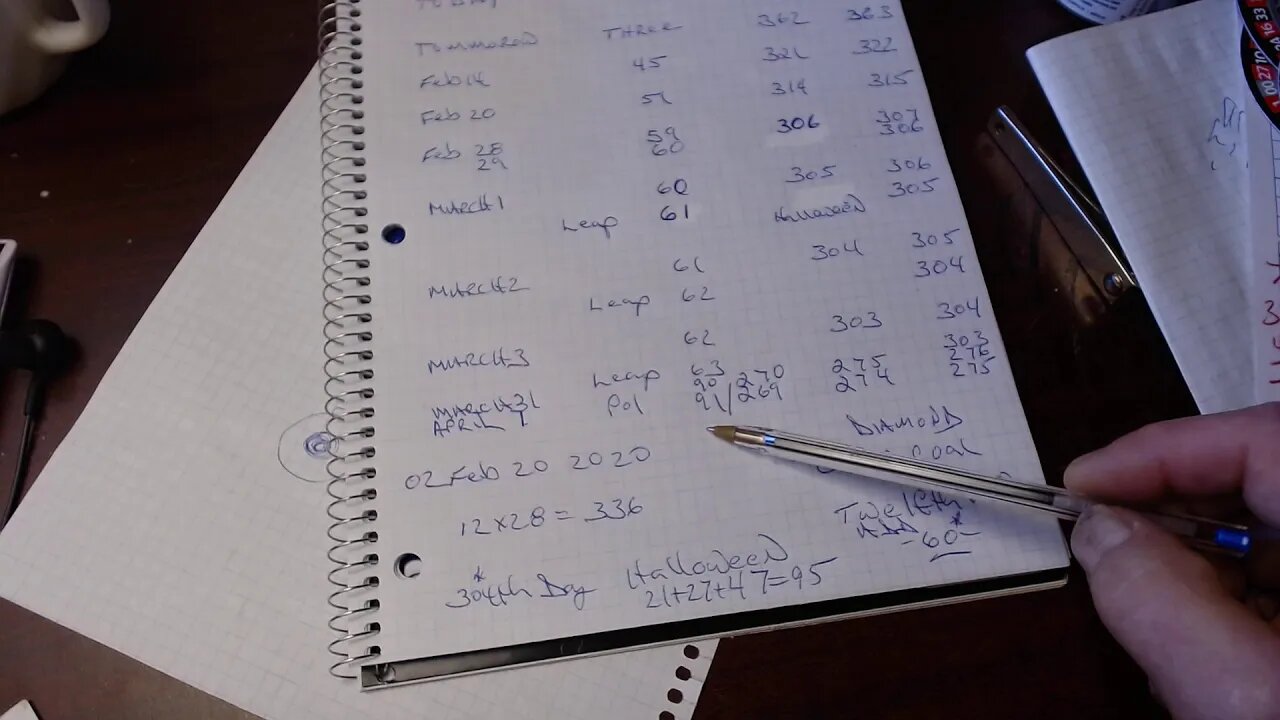 TODAY
TOMMOROW THREE 362 363
Feb 14 45 321 322
Feb 20 51 314 315
Feb 28 59 306 307
29 60 306
MARCH 1 60 305 306
Leap 61 Halloween 305
MARCH 2 61 304 305
Leap 62 304
MARCH 3 62 303 304
Leap 63 303
MARCH 31 90/270 275 276
APRIL 1 Pol 91/269 274 275
DIAMOND
02 Feb 20 2020 COAL
12×28 = 336 Twelfth
ADD
-60-*
*
304th Day Halloween
21+27+47=95
00 27 10
16 33